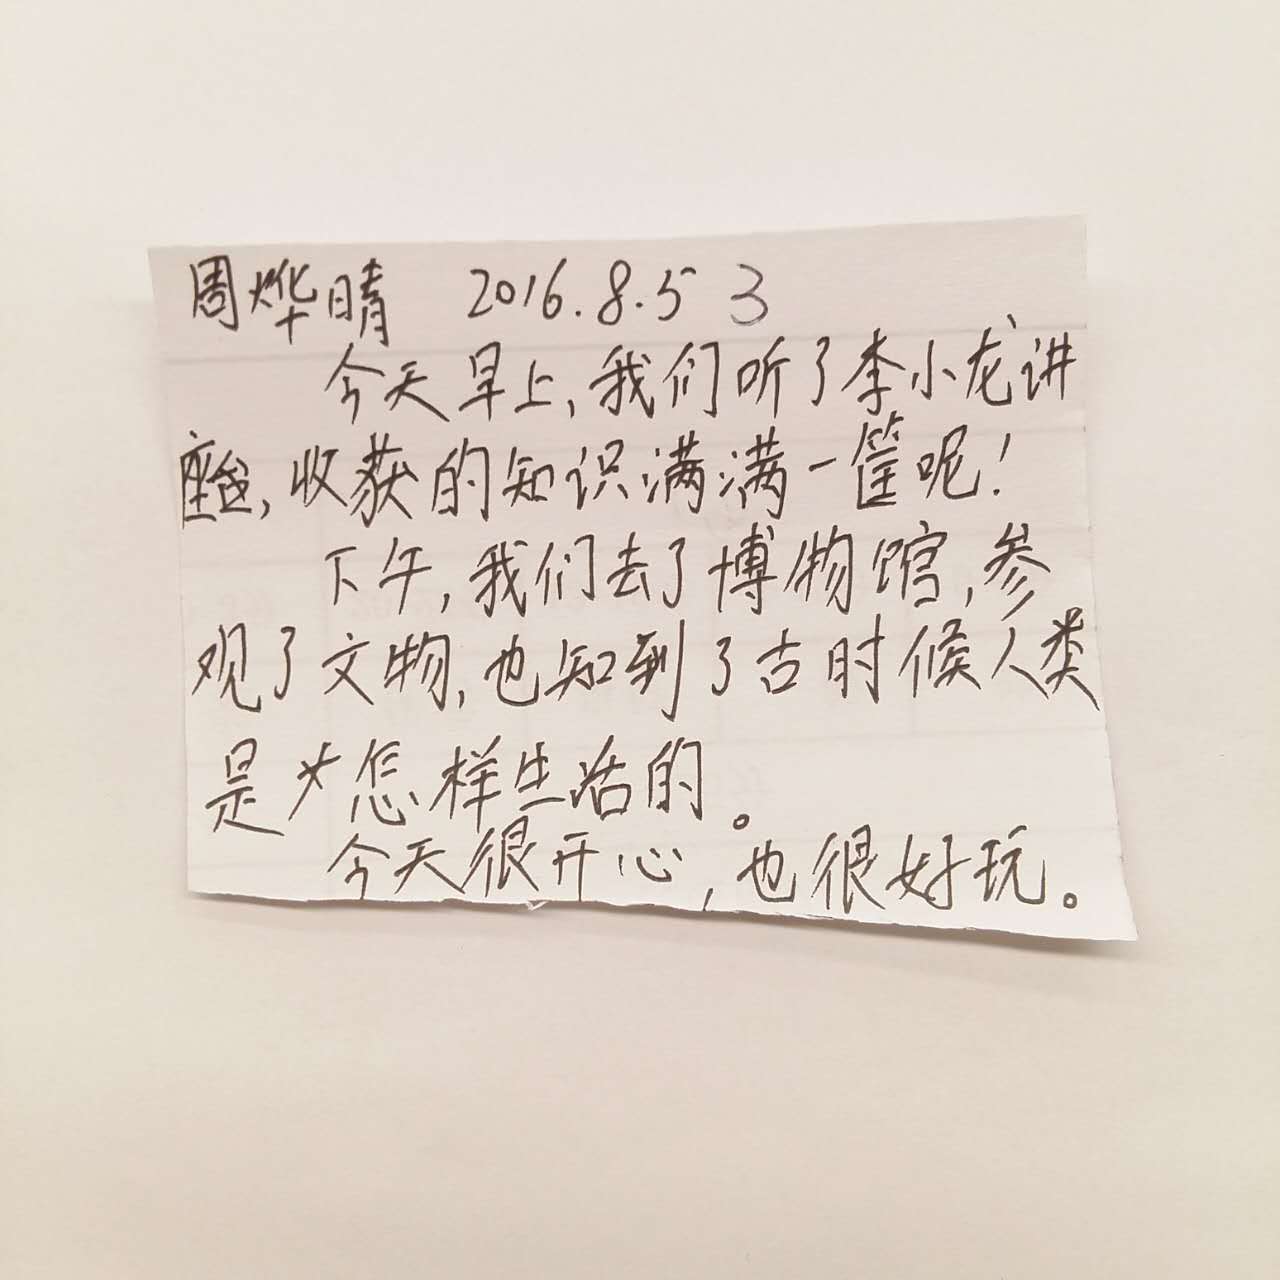 周烨晴 2016.8.5 3
今天早上,我们听了李小龙讲
座,收获的知识满满一筐呢!
下午,我们去了博物馆,参
观了文物,也知到了古时候人类
是怎样生活的。
今天很开心,也很好玩。